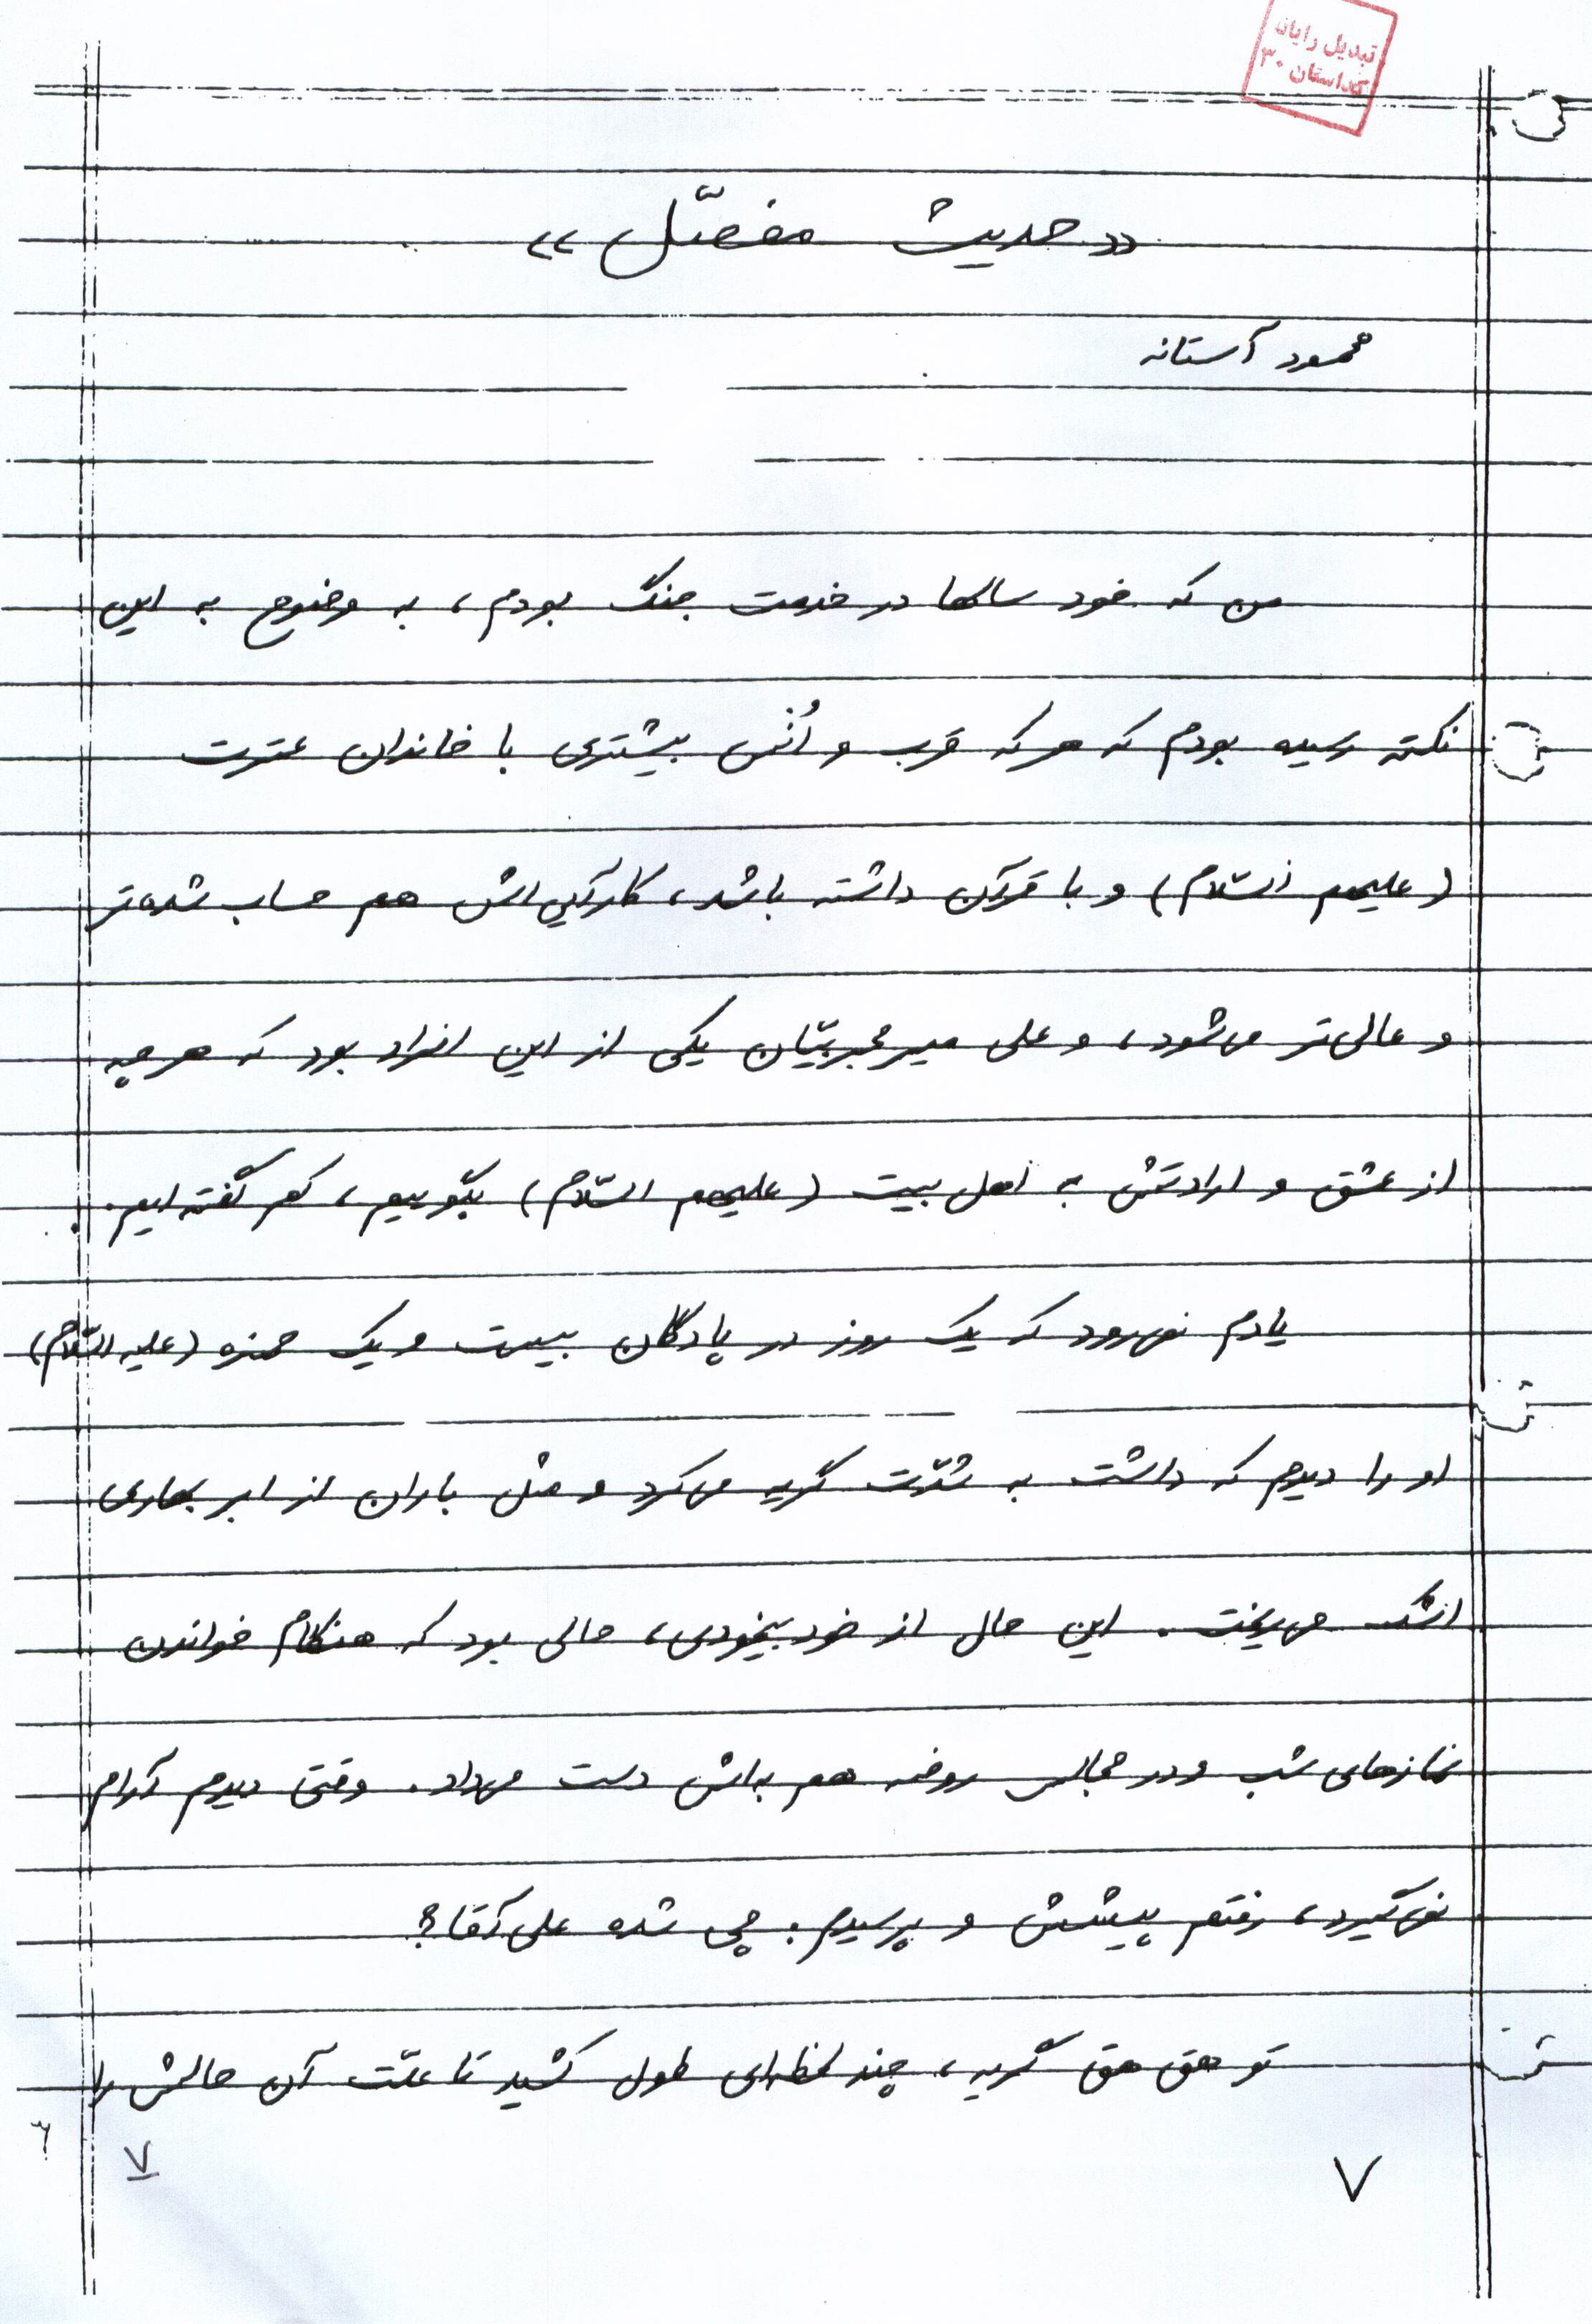 تبدیل رایان
کداستان ۳۰
«حدیث مفصّل»
محمود آستانه
من که خود سالها در خدمت جنگ بودم، به وضوح به این
نکته رسیده بودم که هر که قرب و اُنس بیشتری با خاندان عترت
(علیهم السّلام) و با قرآن داشته باشد، کارآیی اش هم حساب شده تر
و عالی تر می شود، و علی میر یکی از این افراد بود که هر چه
از عشق و ارادتش به اهل بیت (علیهم السّلام) بگوییم، کم گفته ایم.
یادم نمی رود که یک روز در پادگان بیست و یک حمزه (علیه السّلام)
او را دیدم که داشت به شدّت گریه می کرد و مثل باران از ابر بهاری
اشک می ریخت. این حال از خود بیخودی، حالی بود که هنگام خواندن
نمازهای شب و در مجالس روضه هم به اش دست می داد. وقتی دیدم آرام
نمی گیرد، رفتم پیشش و پرسیدم: چی شده علی آقا؟
تو هق هق گریه، چند لحظه ای طول کشید تا علّت آن حالش را
۷
۷